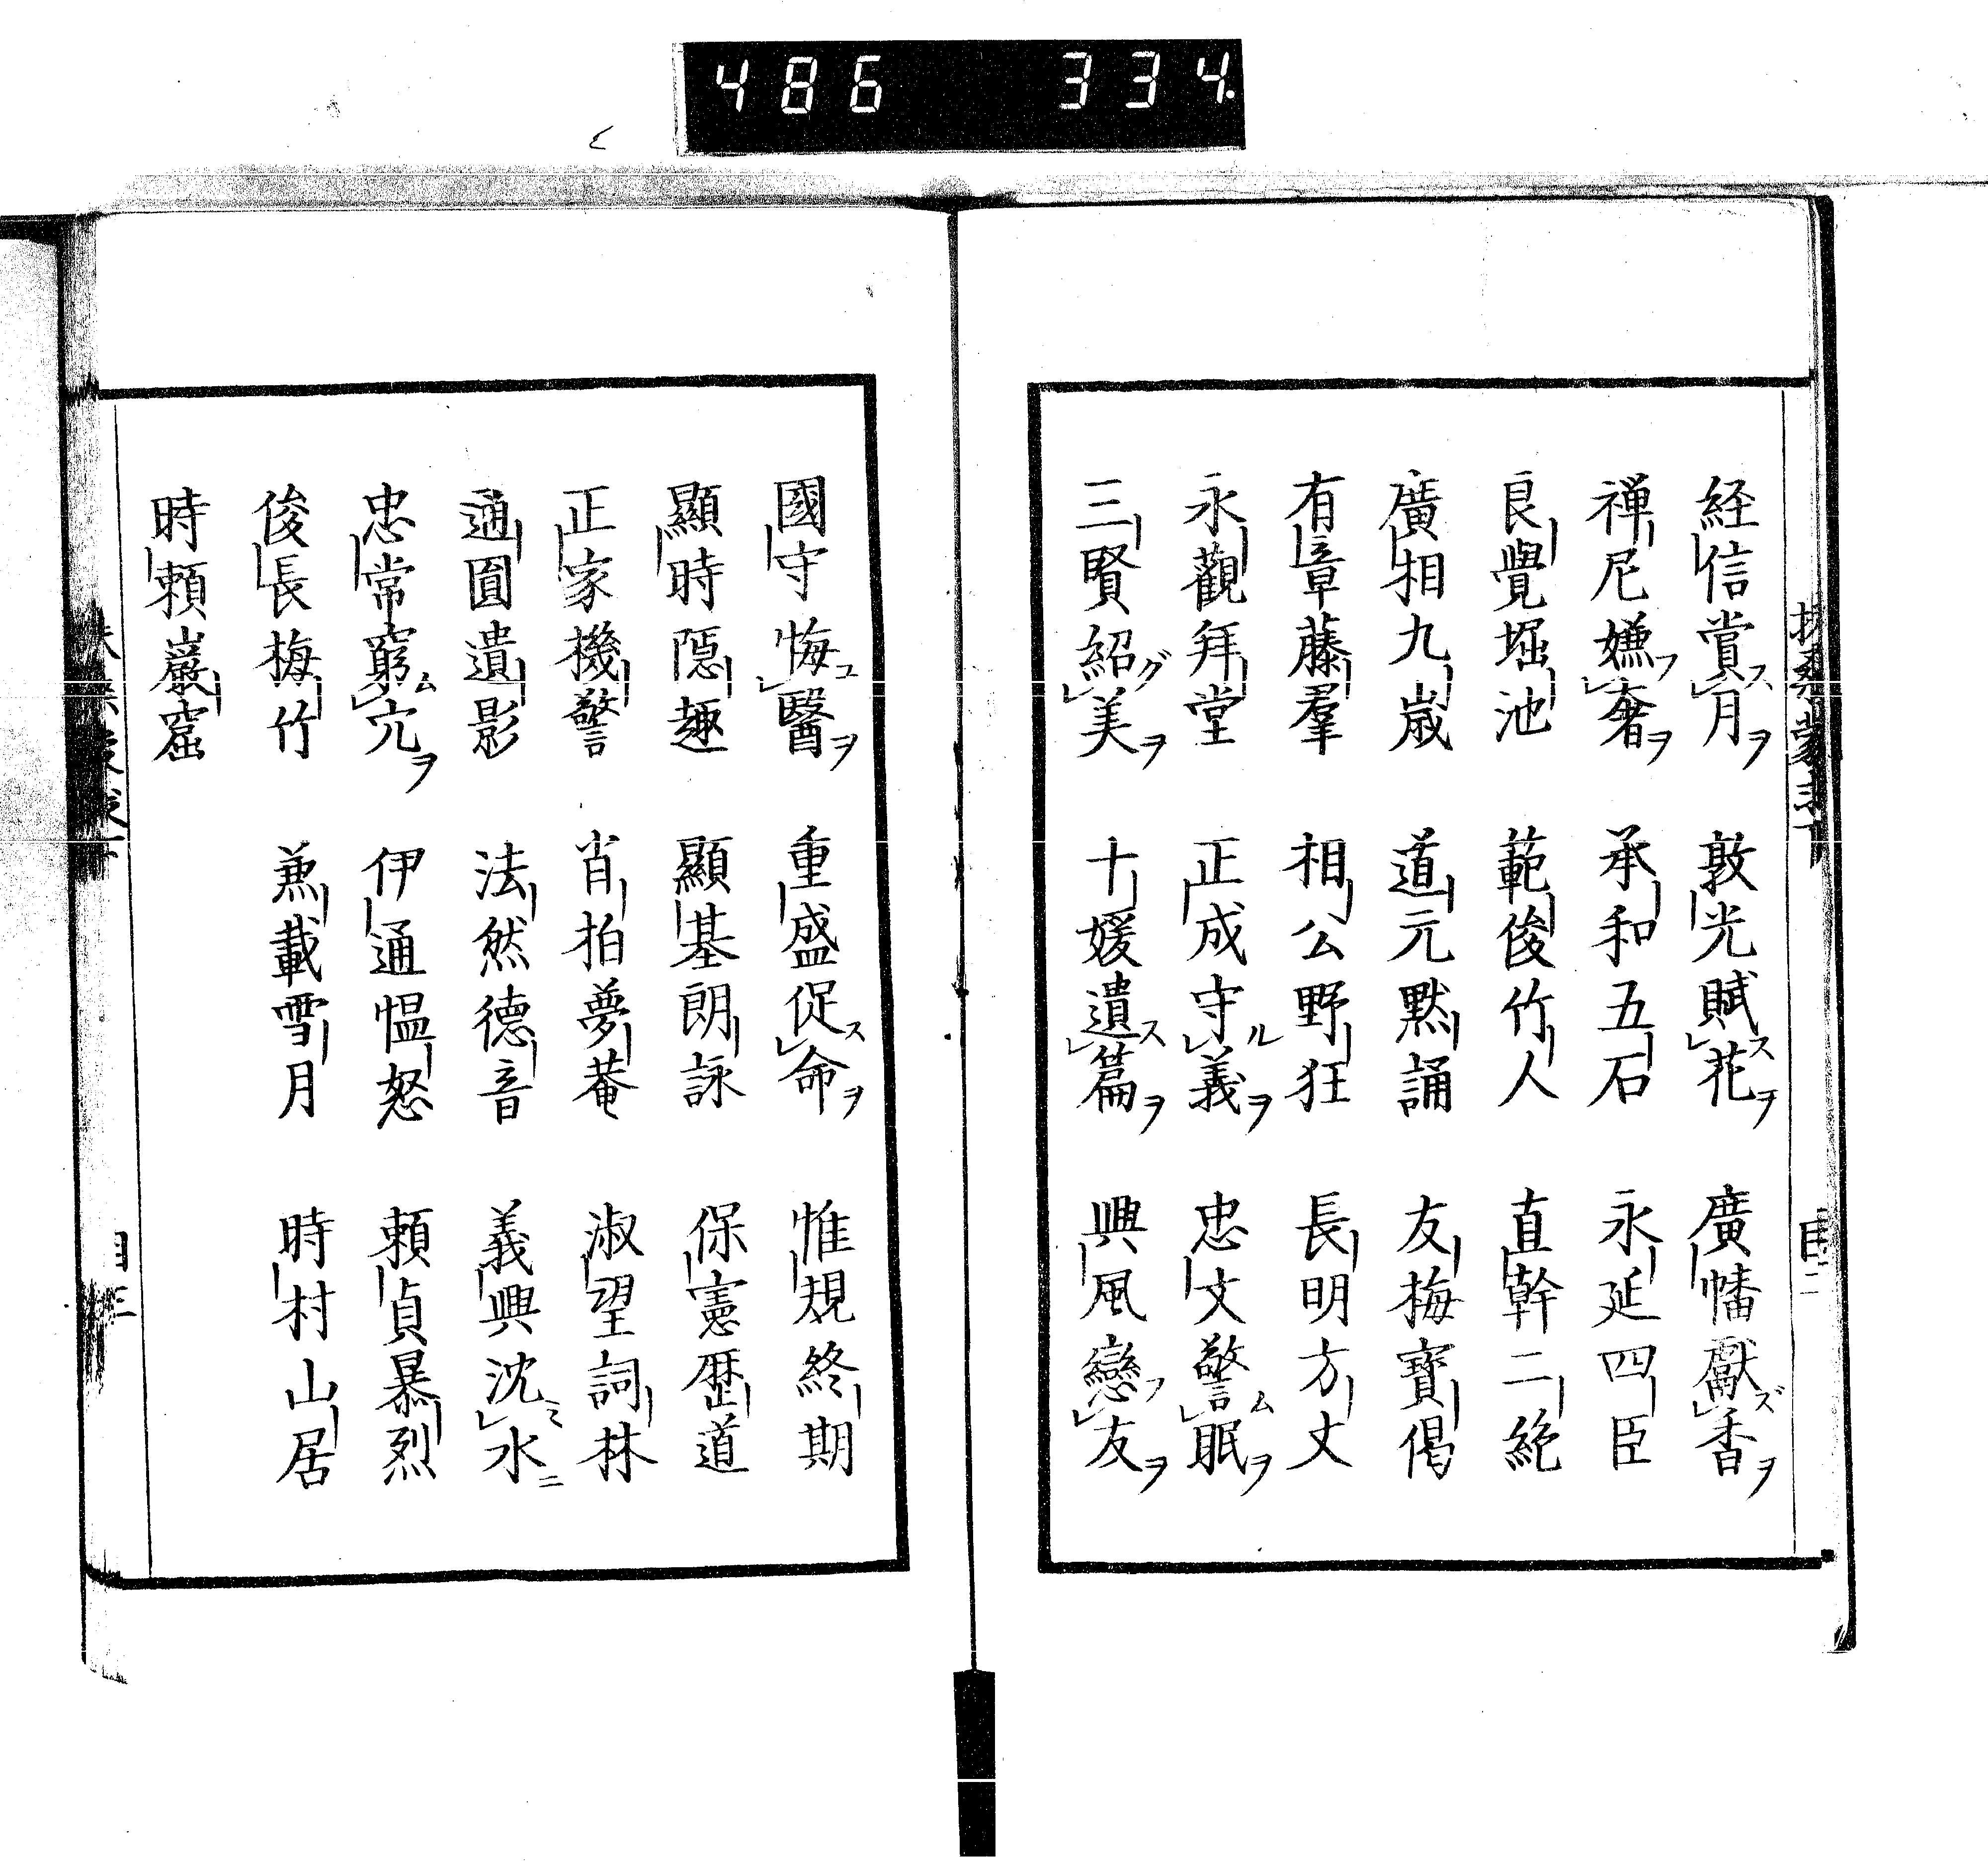 486 334.
経信賞ス月ヲ 敦光賦ス花ヲ 廣幡獻ズ香ヲ
禅尼嫌フ奢ヲ 承和五石 永延四臣
良覺堀池 範俊竹人 直幹二絶
廣相九歳 道元默誦 友梅寶偈
有章藤羣 相公野狂 長明方丈
永觀拜堂 正成守ル義ヲ 忠文警ム眠ヲ
三賢紹グ美ヲ 十媛遺ス篇ヲ 興風戀フ友ヲ
國守悔ユ醫ヲ 重盛促ス命ヲ 惟規終期
顯時隠趣 顯基朗詠 保憲歴道
正家機警 肖柏夢菴 淑望詞林
通圓遺影 法然德音 義興沈ミ水ニ
忠常窮ム穴ヲ 伊通愠怒 頼貞暴烈
俊長梅竹 兼載雪月 時村山居
時頼巖窟